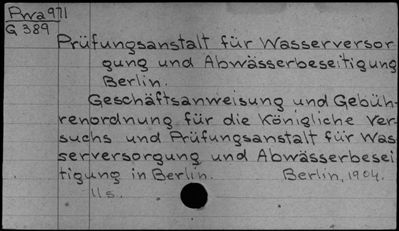 Pwa 971
G 389
Prüfungsanstalt für Wasserversor
gung und Abwässerbeseitigung
Berlin.
Geschäftsanweisung und Gebüh-
renordnung für die Königliche Ver-
suchs und Prüfungsanstalt für Was
serversorgung und Abwässerbesei
tigung in Berlin. Berlin, 1904.
11 s.